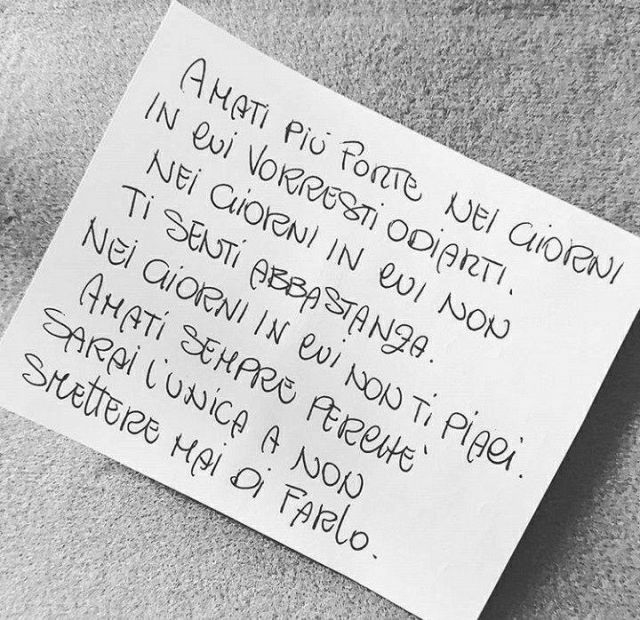 AMATI PIÙ FORTE NEI GIORNI
IN CUI VORRESTI ODIARTI.
NEI GIORNI IN CUI NON
TI SENTI ABBASTANZA.
NEI GIORNI IN CUI NON TI PIACI.
AMATI SEMPRE PERCHÈ
SARAI L'UNICA A NON
SMETTERE MAI DI FARLO.